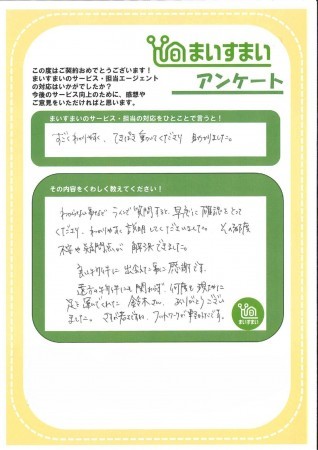 まいすまい
アンケート
この度はご契約おめでとうございます！
まいすまいのサービス・担当エージェント
の対応はいかがでしたか？
今後のサービス向上のために、感想や
ご意見をいただければと思います。
まいすまいのサービス・担当の対応をひとことで言うと！
すごくわかりやすく、てきぱき動いてくださり 助かりました。
その内容をくわしく教えてください！
わからない事など ラインで質問すると 早急に確認をとって
くださり、わかりやすく説明してくださいました。その都度
不安や疑問点が 解決できました。
良い物件に出会えた事に感謝です。
遠方の物件にも関わらず、何度も現地に
足を運んでくれた 鈴木さん、ありがとうござい
ました。さすが若さですね、フットワークが軽かったです。
まいすまい